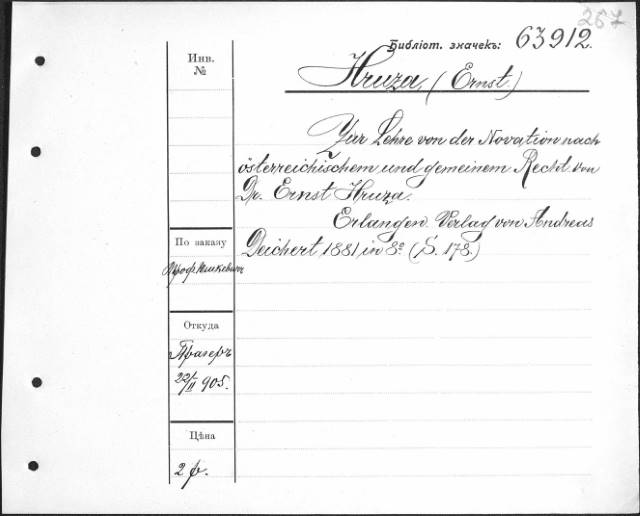 267
Библіот. значекъ: 63912.
Инв.
№
Hruza, (Ernst.)
Zur Lehre von der Novation nach
österreichischem und gemeinem Recht von
Dr. Ernst Hruza.
Erlangen. Verlag von Andreas
Deichert 1881 in 8º (S. 178.)
По заказу
Проф. Пилкевича
Откуда
Прагеръ
22/II 905.
Цѣна
2 р.